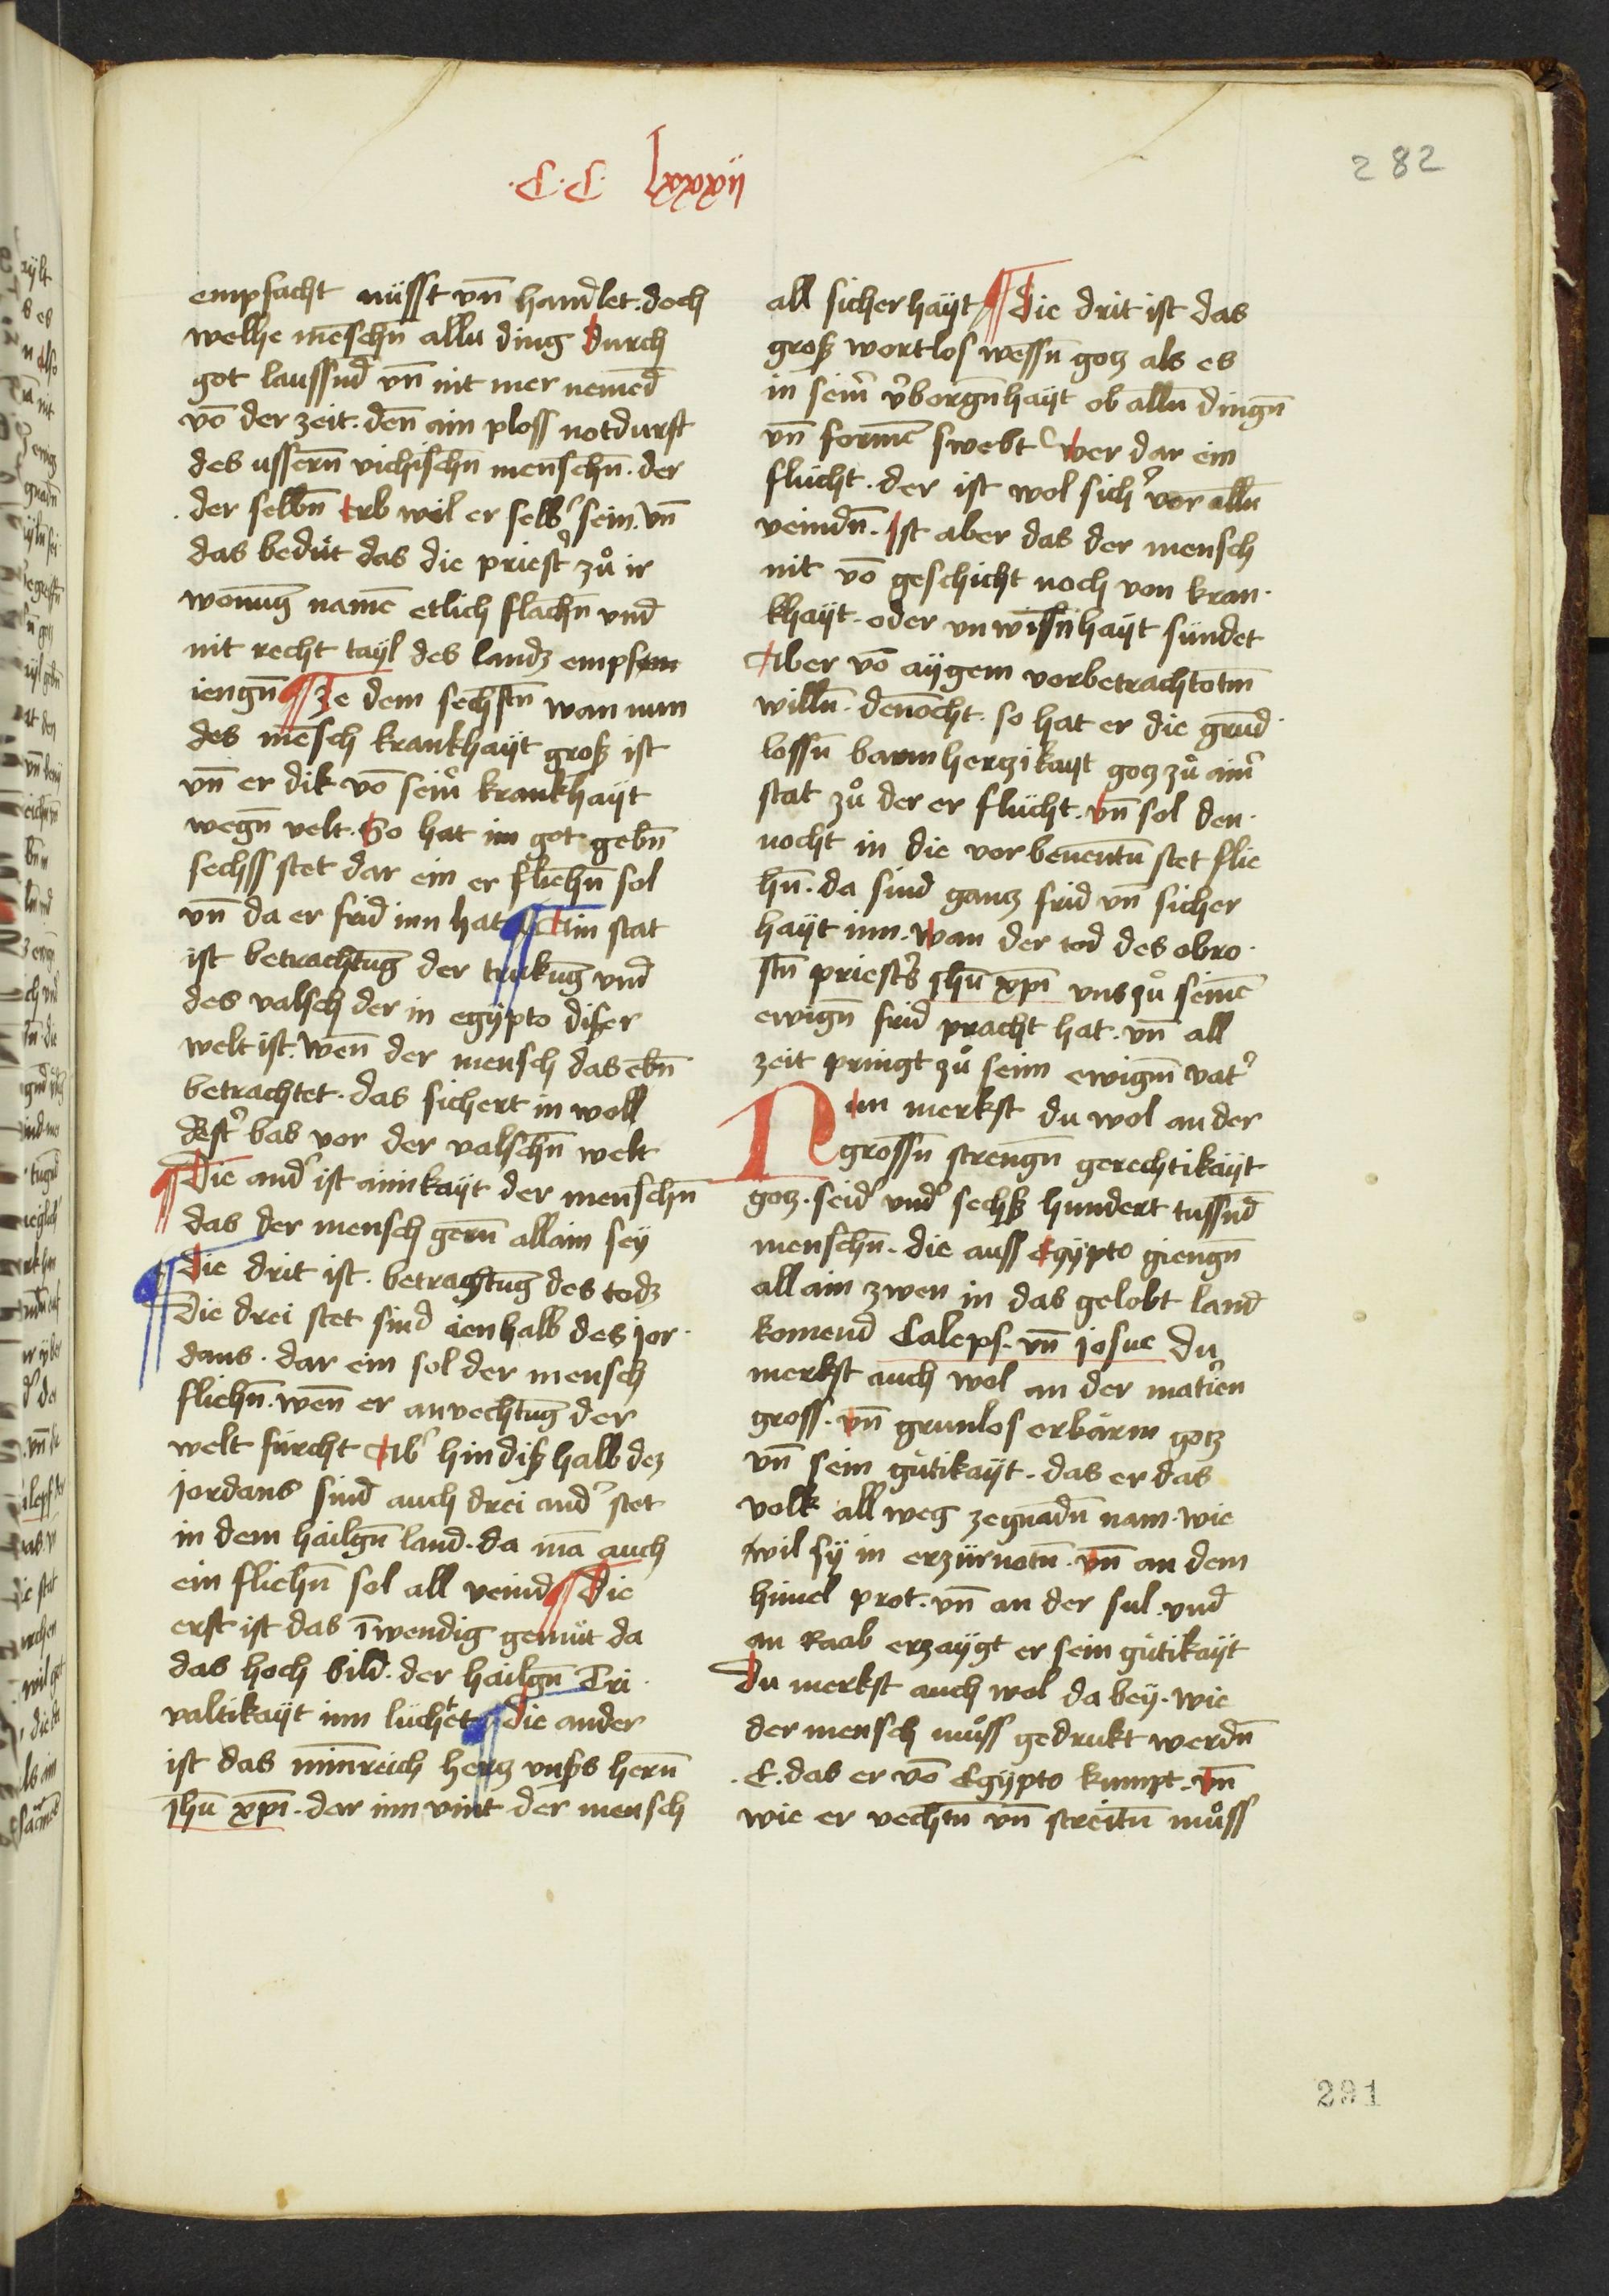 .C.C. lxxxij
282
empfacht nüsst vn̄ handlet. doch
welhe mēschn̄ allu ding durch
got laussnd̄ vn̄ nit mer nemēd
vō der zeit. den̄ ain ploss notdurft
des ussern̄ vichischn̄ menschn̄. der
der selbn̄ erb wil er selb’ sein. vn̄
das bedüt das die priest’ zů ir
wonuḡ namē etlich flachn̄ vnd̄
nit recht tayl des landz empfien
iengn̄ ¶ Ze dem sechstn̄ wan nun
des mēsch krankhayt groß ist
vn̄ er dik vō sein’ krankhayt
wegn̄ velt. So hat im got gebn̄
sechss stet dar ein er fliehn̄ sol
vn̄ da er frid inn hat ¶ Ain stat
ist betrachtuḡ der trukuḡ vnd̄
des valsch der in egÿpto diser
welt ist. wen̄ der mensch das ebn̄
betrachtet. das sichert in woll
dest’ bas vor der valschn̄ welt
¶ Die and’ ist ainikayt der menschn̄
das der mensch gern̄ allain seÿ
¶ Die drit ist. betrachtuḡ des todz
Die drei stet sind ienhalb des jor.
dans. dar ein sol der mensch
fliehn̄. wen̄ er anvechtuḡ der
welt fürcht Ab’ hin diß halb dez
jordans sind auch drei and’ stet
in dem hailgn̄ land. da mā auch
ein fliehn̄ sol all veind ¶ Die
erst ist das īwendig gemüt da
das hoch bild. der hailgn̄ Tri
valtikayt inn lüchtet ¶ Die ander
ist das min̄reich hertz vnßs hern̄
jhū xp̄i. dar inn vint der mensch
all sicherhayt ¶ Die drit ist das
groß wortlos wessn̄ gotz als es
in sein’ v’borgn̄hayt ob alln̄ dingn̄
vn̄ formē swebt wer dar ein
flücht. der ist wol sich’ vor alln̄
veindn̄. Ist aber das der mensch
nit vō geschicht noch von kran.
khayt. oder vnwissn̄hayt sündet
Aber vō aÿgem vorbetrachtotm̄
willn̄. den̄ocht. so hat er die grūd.
lossn̄ barmhertzikayt gotz zů ain’
stat zů der er flücht. vn̄ sol den.
nocht in die vorbenentn̄ stet flie
hn̄. da sind gantz frid vn̄ sicher
hayt inn. wan der tod des obro.
stn̄ priest’s jhū xp̄i vns zů seinē
ewign̄ frid pracht hat. vn̄ all
zeit pringt zů seim ewigm̄ vat’
Nun merkst du wol an der
grossn̄ strengn̄ gerechtikayt
gotz. seid’ vnd’ sechß hundert tussnd̄
menschn̄. die auss Egÿpto giengn̄
allain zwen in das gelobt land
komend Caleps. vn̄ josue du
merkst auch wol an der mat’ien
gross. vn̄ grunlos erbärm gotz
vn̄ sein gütikayt. das er das
volk all weg zegnadn̄ nam. wie
wil sÿ in erzürnotn̄. vn̄ an dem
himel prot. vn̄ an der sul. vnd̄
an Raab erzaÿgt er sein gütikayt
Du merkst auch wol da beÿ. wie
der mensch můss gedrukt werdn̄
.E. das er vō Egÿpto kumpt. vn̄
wie er vechtn̄ vn̄ streitn̄ můss
291